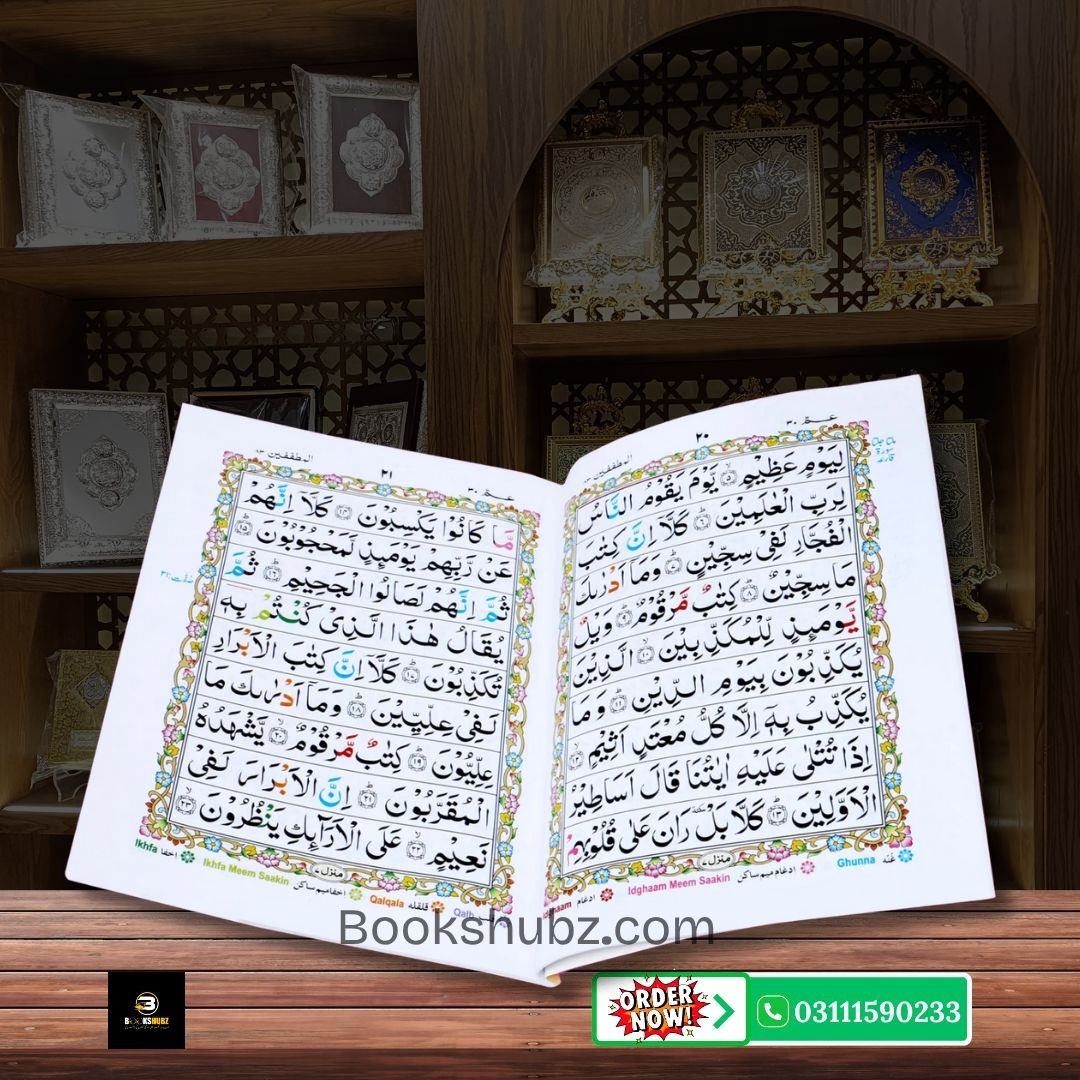 ٢٠
عـمّ ٣٠
المطففين ٨٣
لِيَوْمٍ عَظِيْمٍ ۙ﴿۵﴾ يَّوْمَ يَقُوْمُ النَّاسُ
لِرَبِّ الْعٰلَمِيْنَ ؕ﴿۶﴾ كَلَّاۤ اِنَّ كِتٰبَ
الْفُجَّارِ لَفِيْ سِجِّيْنٍ ؕ﴿۷﴾ وَمَاۤ اَدْرٰىكَ
مَا سِجِّيْنٌ ؕ﴿۸﴾ كِتٰبٌ مَّرْقُوْمٌ ؕ﴿۹﴾ وَيْلٌ
يَّوْمَىِٕذٍ لِّلْمُكَذِّبِيْنَ ۙ﴿۱۰﴾ الَّذِيْنَ
يُكَذِّبُوْنَ بِيَوْمِ الدِّيْنِ ؕ﴿۱۱﴾ وَمَا
يُكَذِّبُ بِهٖۤ اِلَّا كُلُّ مُعْتَدٍ اَثِيْمٍ ۙ﴿۱۲﴾
اِذَا تُتْلٰى عَلَيْهِ اٰيٰتُنَا قَالَ اَسَاطِيْرُ
الْاَوَّلِيْنَ ؕ﴿۱۳﴾ كَلَّا بَلْ ٚ رَانَ عَلٰى قُلُوْبِهِمْ
منزل ٧
Ghunna غُنّه
Idghaam Meem Saakin ادغام میم ساکن
ادغام
٢١
عـمّ ٣٠
المطففين ٨٣
مَّا كَانُوْا يَكْسِبُوْنَ ﴿۱۴﴾ كَلَّاۤ اِنَّهُمْ
عَنْ رَّبِّهِمْ يَوْمَىِٕذٍ لَّمَحْجُوْبُوْنَ ؕ﴿۱۵﴾
ثُمَّ اِنَّهُمْ لَصَالُوا الْجَحِيْمِ ؕ﴿۱۶﴾ ثُمَّ
يُقَالُ هٰذَا الَّذِيْ كُنْتُمْ بِهٖ
تُكَذِّبُوْنَ ؕ﴿۱۷﴾ كَلَّاۤ اِنَّ كِتٰبَ الْاَبْرَارِ
لَفِيْ عِلِّيِّيْنَ ؕ﴿۱۸﴾ وَمَاۤ اَدْرٰىكَ مَا
عِلِّيُّوْنَ ؕ﴿۱۹﴾ كِتٰبٌ مَّرْقُوْمٌ ۙ﴿۲۰﴾ يَّشْهَدُهُ
الْمُقَرَّبُوْنَ ؕ﴿۲۱﴾ اِنَّ الْاَبْرَارَ لَفِيْ
نَعِيْمٍ ۙ﴿۲۲﴾ عَلَى الْاَرَآىِٕكِ يَنْظُرُوْنَ ۙ﴿۲۳﴾
منزل ٧
Ikhfa اخفا
Ikhfa Meem Saakin اخفا میم ساکن
Qalqala قلقله
Qalb
Bookshubz.com
BOOKSHUBZ
ORDER NOW!
03111590233